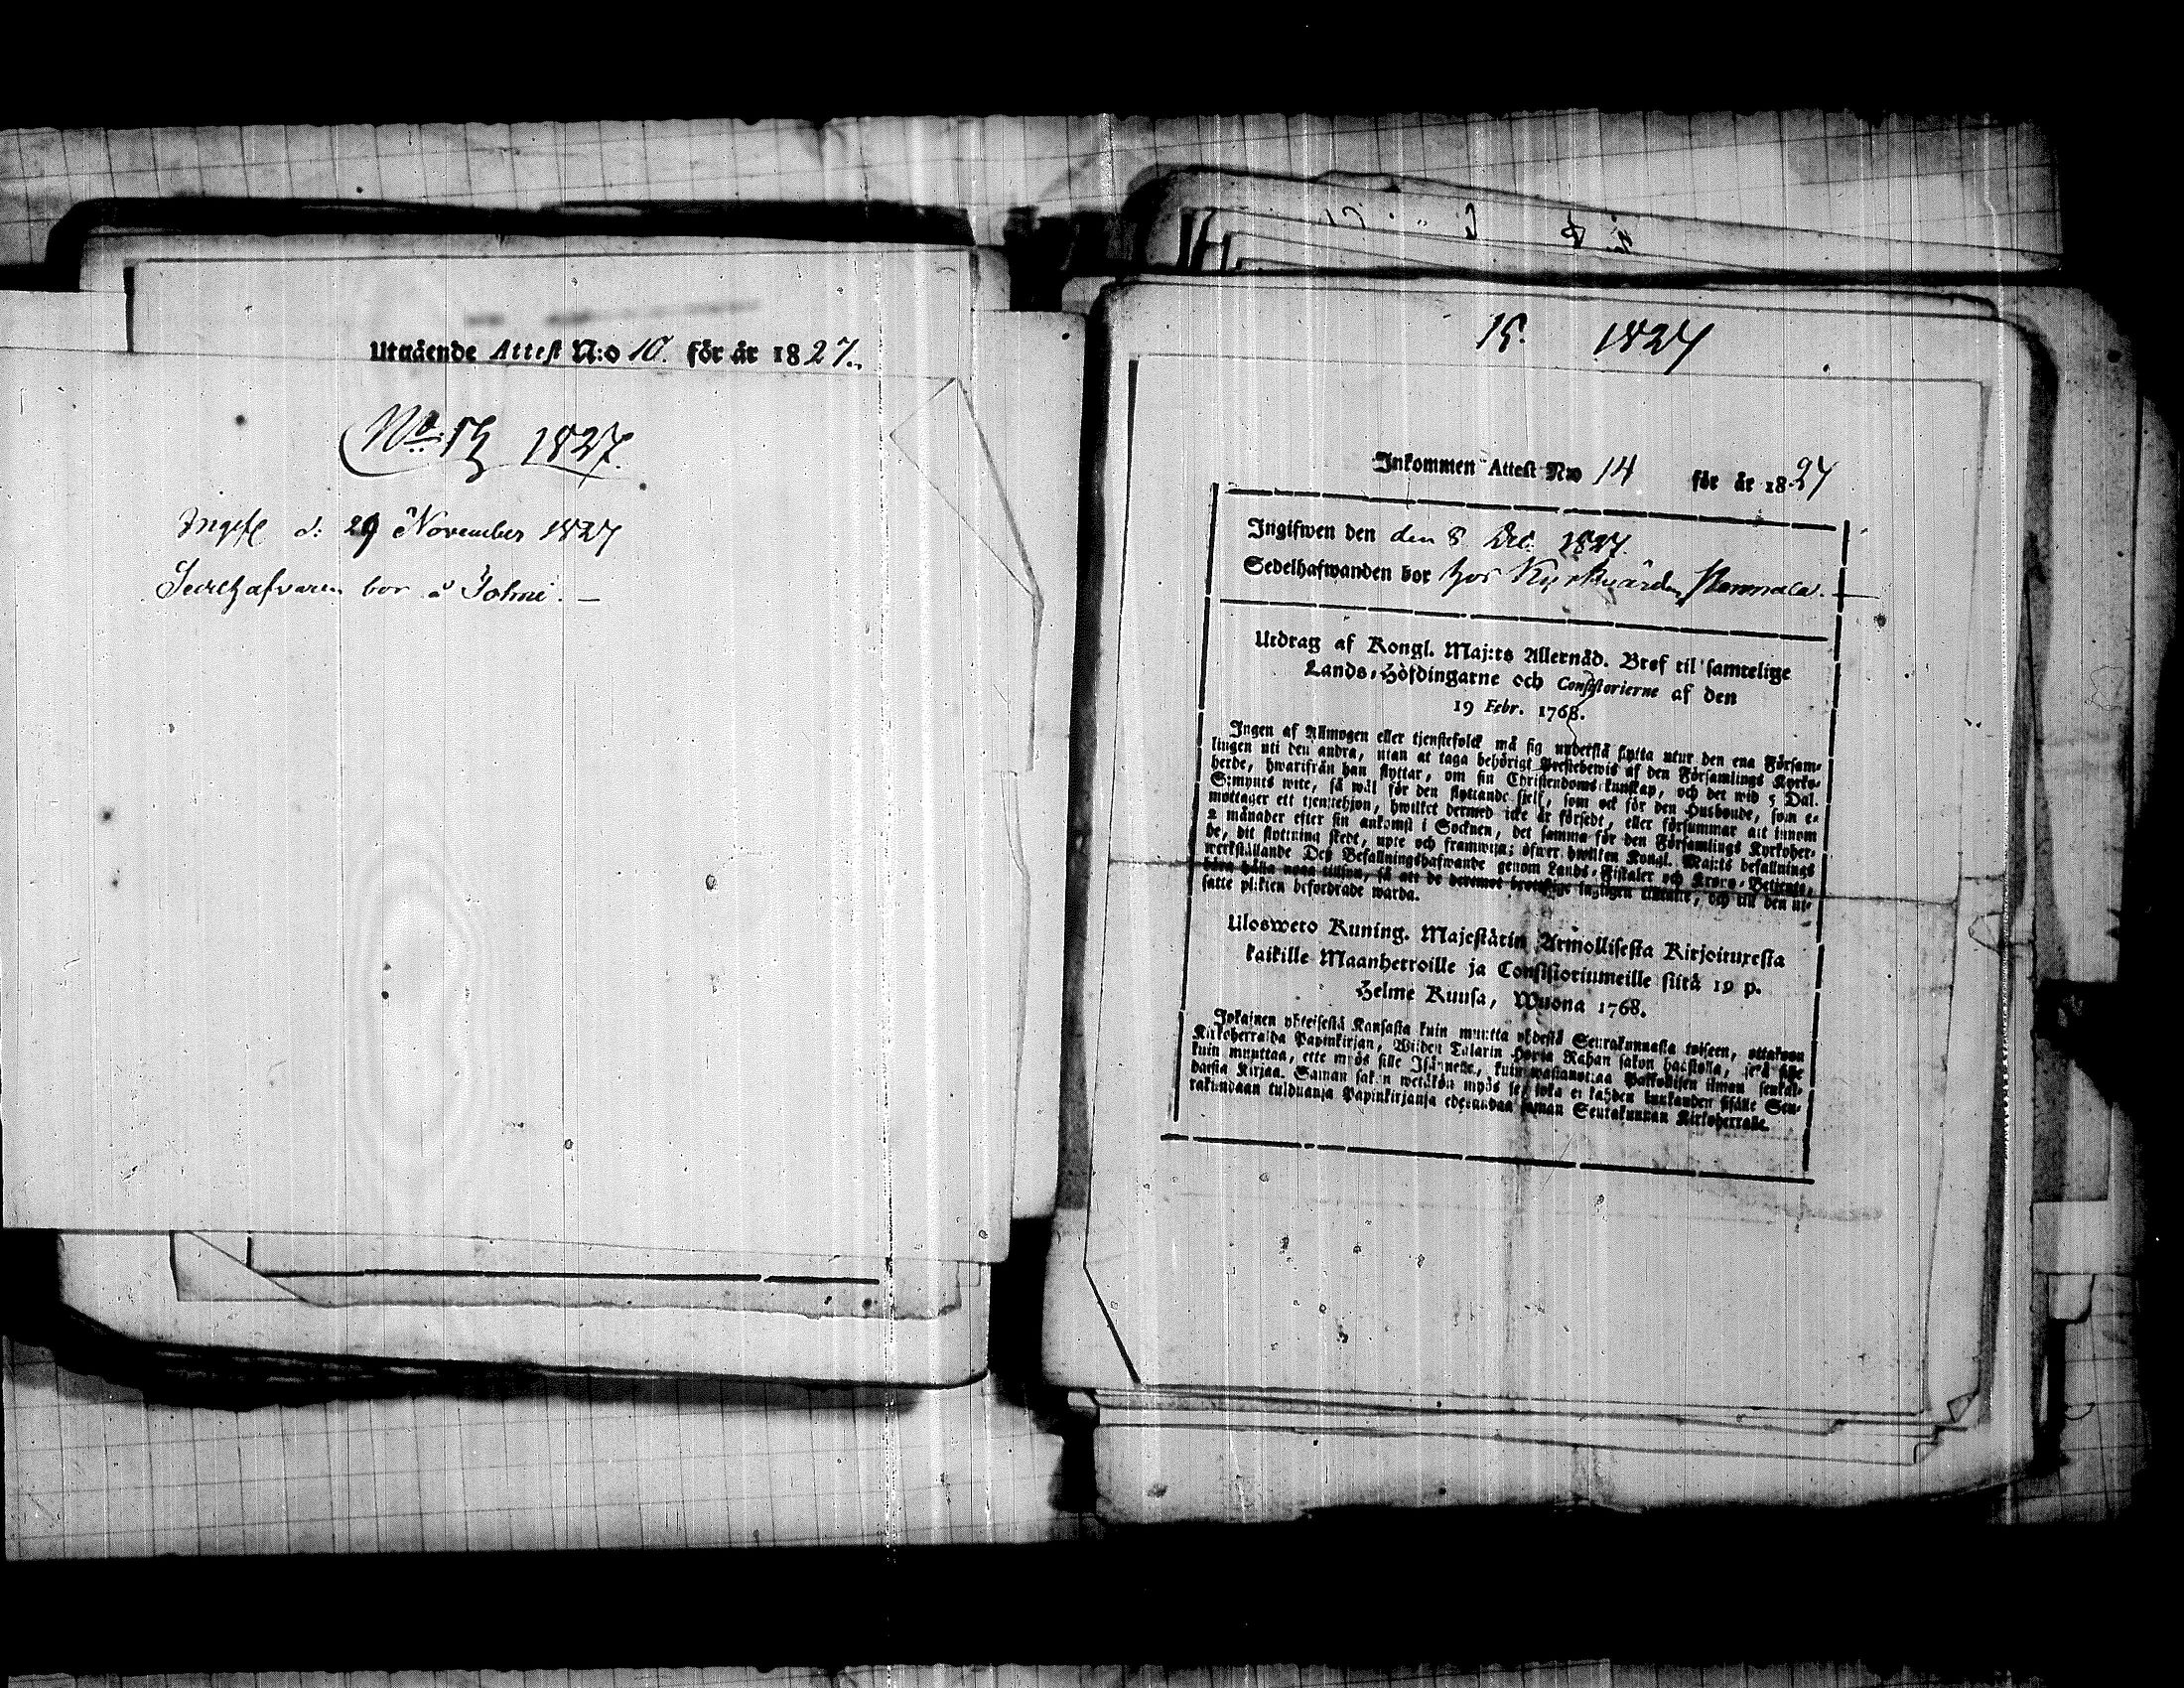 Utgående Attest N:o 10. för år 1827.
No. 15 1827.
d: 29 November 1827
bor å
15. 1827
Inkommen Attest N:o 14 för år 1827
Ingifwen den den 8 Dec. 1827.
Sedelhafwanden bor hos Kyrkvärden
Utdrag af Kongl. Maj:ts Allernåd. Bref til samtelige
Lands-Höfdingarne och Consistorierne af den
19 Febr. 1768.
Ingen af Allmogen eller tjenstefolck må sig understå flytta utur den ena Försam-
lingen uti den andra, utan at taga behörigt Prestebewis af den Församlings Kyrko-
herde, hwarifrån han flyttar, om sin Christendoms kunskap, och det wid 5 Dal.
S:mynts wite, så wäl för den flyttande sjelf, som ock för den Husbonde, som e-
mottager ett tjenstehjon, hwilket dermed icke är försedt, eller försummar att innom
2 månader efter sin ankomst i Socknen, det samma för den Församlings Kyrkoher-
de, dit flyttning skedt, upte och framwisa; öfwer hwilken Kongl. Maj:ts befallnings
werkställande Deß Befallningshafwande genom Lands-Fiskaler och Krono-Betjente,
böra hålla noga tilsyn, så att de deremot brottslige lagligen tilltalte, och till den ut-
satte plikten befordrade warda.
Uloswero Kuning. Majestätin Armollisesta Kirjoituxesta
kaikille Maanherroille ja Consistoriumeille siitä 19 p.
Helme Kuusa, Wuona 1768.
Jokainen yhteisestä Kansasta kuin muutta yhdestä Seurakunnasta toiseen, ottakoon
Kirkoherralda Papinkirjan, Wiiden Talarin Hopia Rahan sakon haastolla, sekä sille
kuin muuttaa, ette myös sille Isännelle, kuin wastanottaa Palkollisen ilman senkal-
daista Kirjaa. Saman sakon wetäkön myös se, joka ei kahden kuukauden sisälle Seu-
rakundaan tulduansa Papinkirjansa edesandaa saman Seurakunnan Kirkoherralle.